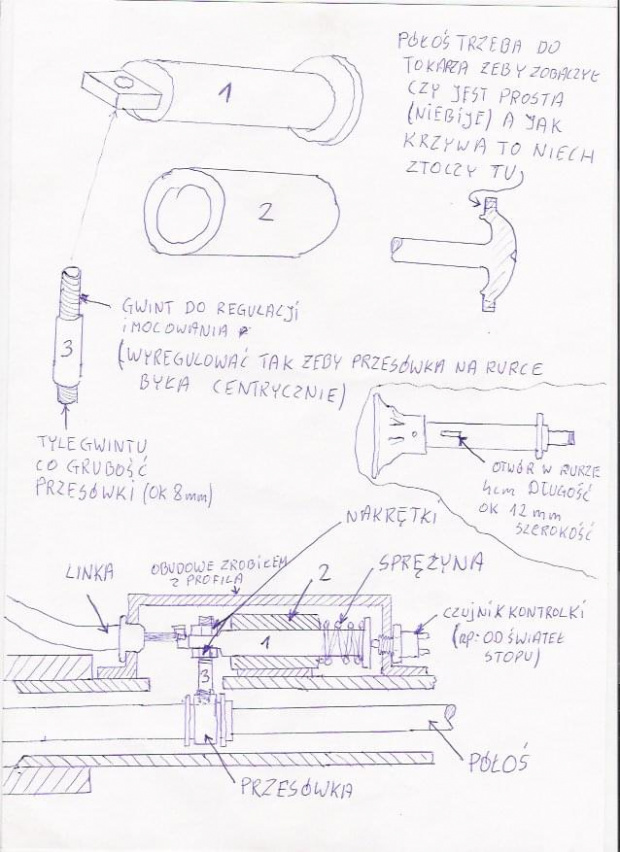 1
PÓŁOŚ TRZEBA DO
TOKARZA ŻEBY ZOBACZYŁ
CZY JEST PROSTA
(NIEBIJE) A JAK
KRZYWA TO NIECH
ZTOCZY TU
2
3
GWINT DO REGULACJI
I MOCOWANIA
(WYREGULOWAĆ TAK ŻEBY PRZESÓWKA NA RURCE
BYŁA CENTRYCZNIE)
TYLE GWINTU
CO GRUBOŚĆ
PRZESÓWKI (OK 8mm)
OTWÓR W RURZE
4cm DŁUGOŚĆ
OK 12 mm
SZEROKOŚĆ
NAKRĘTKI
LINKA
OBUDOWE ZROBIŁEM
Z PROFILA
2
SPRĘŻYNA
CZUJNIK KONTROLKI
(np: OD ŚWIATEŁ
STOPU)
1
3
PÓŁOŚ
PRZESÓWKA